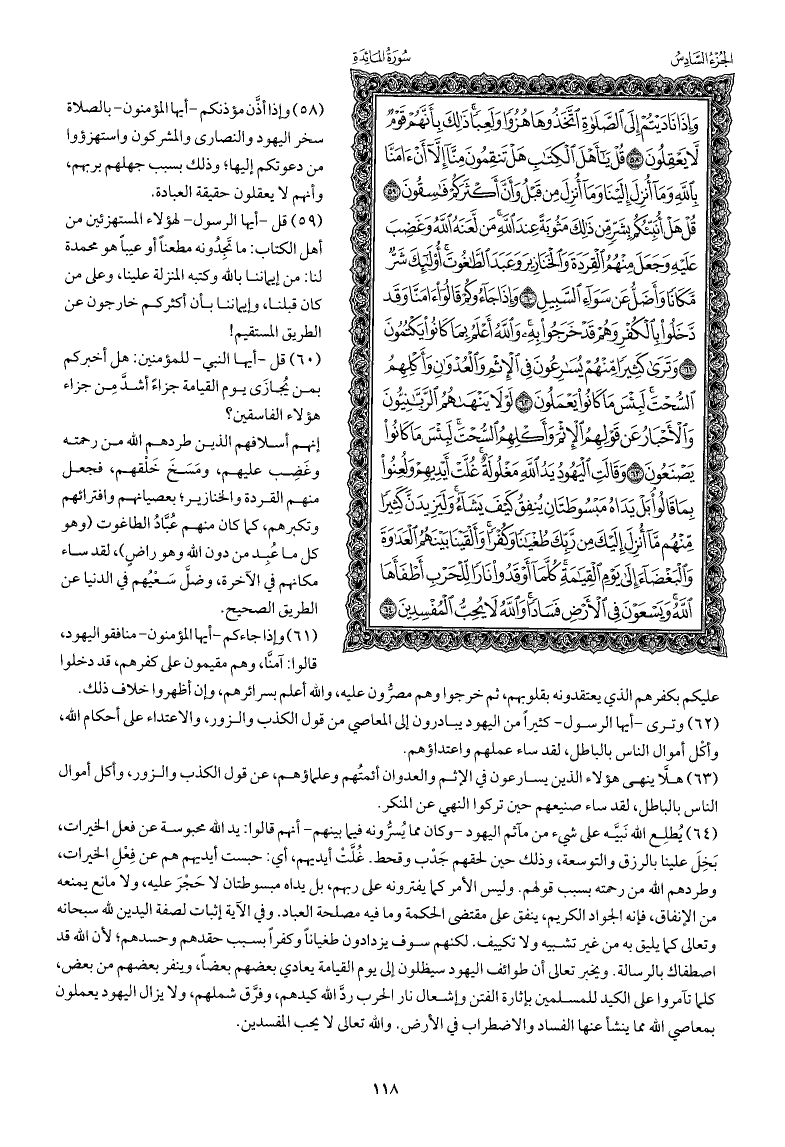 الجزء السادس
سورة المائدة
وَإِذَا نَادَيْتُمْ إِلَى ٱلصَّلَوٰةِ ٱتَّخَذُوهَا هُزُوًا وَلَعِبًا ذَٰلِكَ بِأَنَّهُمْ قَوْمٌ
لَّا يَعْقِلُونَ ٥٨ قُلْ يَٰٓأَهْلَ ٱلْكِتَٰبِ هَلْ تَنقِمُونَ مِنَّآ إِلَّآ أَنْ ءَامَنَّا
بِٱللَّهِ وَمَآ أُنزِلَ إِلَيْنَا وَمَآ أُنزِلَ مِن قَبْلُ وَأَنَّ أَكْثَرَكُمْ فَٰسِقُونَ ٥٩
قُلْ هَلْ أُنَبِّئُكُم بِشَرٍّ مِّن ذَٰلِكَ مَثُوبَةً عِندَ ٱللَّهِ مَن لَّعَنَهُ ٱللَّهُ وَغَضِبَ
عَلَيْهِ وَجَعَلَ مِنْهُمُ ٱلْقِرَدَةَ وَٱلْخَنَازِيرَ وَعَبَدَ ٱلطَّٰغُوتَ أُو۟لَٰٓئِكَ شَرٌّ
مَّكَانًا وَأَضَلُّ عَن سَوَآءِ ٱلسَّبِيلِ ٦٠ وَإِذَا جَآءُوكُمْ قَالُوٓا۟ ءَامَنَّا وَقَد
دَّخَلُوا۟ بِٱلْكُفْرِ وَهُمْ قَدْ خَرَجُوا۟ بِهِۦ وَٱللَّهُ أَعْلَمُ بِمَا كَانُوا۟ يَكْتُمُونَ
٦١ وَتَرَىٰ كَثِيرًا مِّنْهُمْ يُسَٰرِعُونَ فِى ٱلْإِثْمِ وَٱلْعُدْوَٰنِ وَأَكْلِهِمُ
ٱلسُّحْتَ لَبِئْسَ مَا كَانُوا۟ يَعْمَلُونَ ٦٢ لَوْلَا يَنْهَىٰهُمُ ٱلرَّبَّٰنِيُّونَ
وَٱلْأَحْبَارُ عَن قَوْلِهِمُ ٱلْإِثْمَ وَأَكْلِهِمُ ٱلسُّحْتَ لَبِئْسَ مَا كَانُوا۟
يَصْنَعُونَ ٦٣ وَقَالَتِ ٱلْيَهُودُ يَدُ ٱللَّهِ مَغْلُولَةٌ غُلَّتْ أَيْدِيهِمْ وَلُعِنُوا۟
بِمَا قَالُوا۟ بَلْ يَدَاهُ مَبْسُوطَتَانِ يُنفِقُ كَيْفَ يَشَآءُ وَلَيَزِيدَنَّ كَثِيرًا
مِّنْهُم مَّآ أُنزِلَ إِلَيْكَ مِن رَّبِّكَ طُغْيَٰنًا وَكُفْرًا وَأَلْقَيْنَا بَيْنَهُمُ ٱلْعَدَٰوَةَ
وَٱلْبَغْضَآءَ إِلَىٰ يَوْمِ ٱلْقِيَٰمَةِ كُلَّمَآ أَوْقَدُوا۟ نَارًا لِّلْحَرْبِ أَطْفَأَهَا
ٱللَّهُ وَيَسْعَوْنَ فِى ٱلْأَرْضِ فَسَادًا وَٱللَّهُ لَا يُحِبُّ ٱلْمُفْسِدِينَ ٦٤
(٥٨) وإذا أذَّن مؤذنكم -أيها المؤمنون- بالصلاة
سخر اليهود والنصارى والمشركون واستهزؤوا
من دعوتكم إليها؛ وذلك بسبب جهلهم بربهم،
وأنهم لا يعقلون حقيقة العبادة.
(٥٩) قل -أيها الرسول- لهؤلاء المستهزئين من
أهل الكتاب: ما تَجِدُونه مطعناً أو عيباً هو محمدة
لنا: من إيماننا بالله وكتبه المنزلة علينا، وعلى من
كان قبلنا، وإيماننا بأن أكثركم خارجون عن
الطريق المستقيم!
(٦٠) قل -أيها النبي- للمؤمنين: هل أخبركم
بمن يُجازَى يوم القيامة جزاءً أشدَّ مِن جزاء
هؤلاء الفاسقين؟
إنهم أسلافهم الذين طردهم الله من رحمته
وغَضِب عليهم، ومَسَخَ خَلْقهم، فجعل
منهم القردة والخنازير؛ بعصيانهم وافترائهم
وتكبرهم، كما كان منهم عُبَّادُ الطاغوت (وهو
كل ما عُبِد من دون الله وهو راضٍ)، لقد ساء
مكانهم في الآخرة، وضلَّ سَعْيُهم في الدنيا عن
الطريق الصحيح.
(٦١) وإذا جاءكم -أيها المؤمنون- منافقو اليهود،
قالوا: آمنَّا، وهم مقيمون على كفرهم، قد دخلوا
عليكم بكفرهم الذي يعتقدونه بقلوبهم، ثم خرجوا وهم مصرُّون عليه، والله أعلم بسرائرهم، وإن أظهروا خلاف ذلك.
(٦٢) وترى -أيها الرسول- كثيراً من اليهود يبادرون إلى المعاصي من قول الكذب والزور، والاعتداء على أحكام الله،
وأكْل أموال الناس بالباطل، لقد ساء عملهم واعتداؤهم.
(٦٣) هلَّا ينهى هؤلاء الذين يسارعون في الإثم والعدوان أئمتُهم وعلماؤهم، عن قول الكذب والزور، وأكل أموال
الناس بالباطل، لقد ساء صنيعهم حين تركوا النهي عن المنكر.
(٦٤) يُطلِع الله نَبيَّه على شيء من مآثم اليهود -وكان مما يُسرُّونه فيما بينهم- أنهم قالوا: يد الله محبوسة عن فعل الخيرات،
بَخِلَ علينا بالرزق والتوسعة، وذلك حين لحقهم جَدْب وقحط. غُلَّتْ أيديهم، أي: حبست أيديهم هم عن فِعْلِ الخيرات،
وطردهم الله من رحمته بسبب قولهم. وليس الأمر كما يفترونه على ربهم، بل يداه مبسوطتان لا حَجْرَ عليه، ولا مانع يمنعه
من الإنفاق، فإنه الجواد الكريم، ينفق على مقتضى الحكمة وما فيه مصلحة العباد. وفي الآية إثبات لصفة اليدين لله سبحانه
وتعالى كما يليق به من غير تشبيه ولا تكييف. لكنهم سوف يزدادون طغياناً وكفراً بسبب حقدهم وحسدهم؛ لأن الله قد
اصطفاك بالرسالة. ويخبر تعالى أن طوائف اليهود سيظلون إلى يوم القيامة يعادي بعضهم بعضاً، وينفر بعضهم من بعض،
كلما تآمروا على الكيد للمسلمين بإثارة الفتن وإشعال نار الحرب ردَّ الله كيدهم، وفرَّق شملهم، ولا يزال اليهود يعملون
بمعاصي الله مما ينشأ عنها الفساد والاضطراب في الأرض. والله تعالى لا يحب المفسدين.
١١٨